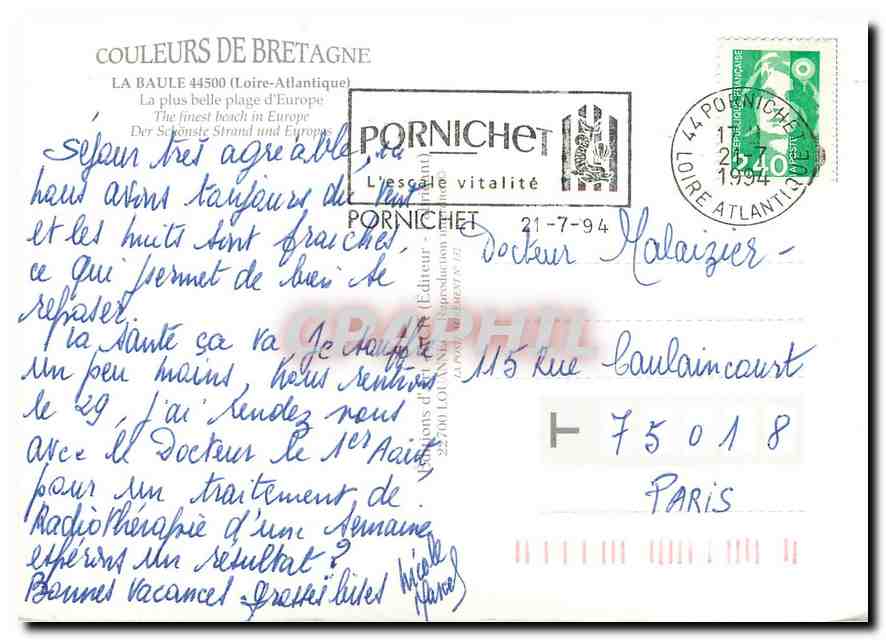 COULEURS DE BRETAGNE
LA BAULE 44500 (Loire-Atlantique)
La plus belle plage d'Europe
The finest beach in Europe
Der Schönste Strand und Europas
Séjour très agréable,
nous avons toujours du vent
et les nuits sont fraiches,
ce qui permet de bien se
reposer.
la santé ça va Je souffre
un peu moins, Nous rentrons
le 29, j'ai rendez vous
avec le Docteur le 1er Août
pour un traitement de
Radiothérapie d'une semaine
espérons un résultat ?
Bonnes vacances - grosses bises
Nicole
Marcel
PORNICHET
L'escale vitalité
PORNICHET 21-7-94
44 PORNICHET
21-7
1994
LOIRE ATLANTIQUE
REPUBLIQUE FRANÇAISE
LA POSTE
2,40
Docteur Malaizier -
115 Rue Caulaincourt
T 75018
PARIS
22700 LOUANNEC
CRAPHIL